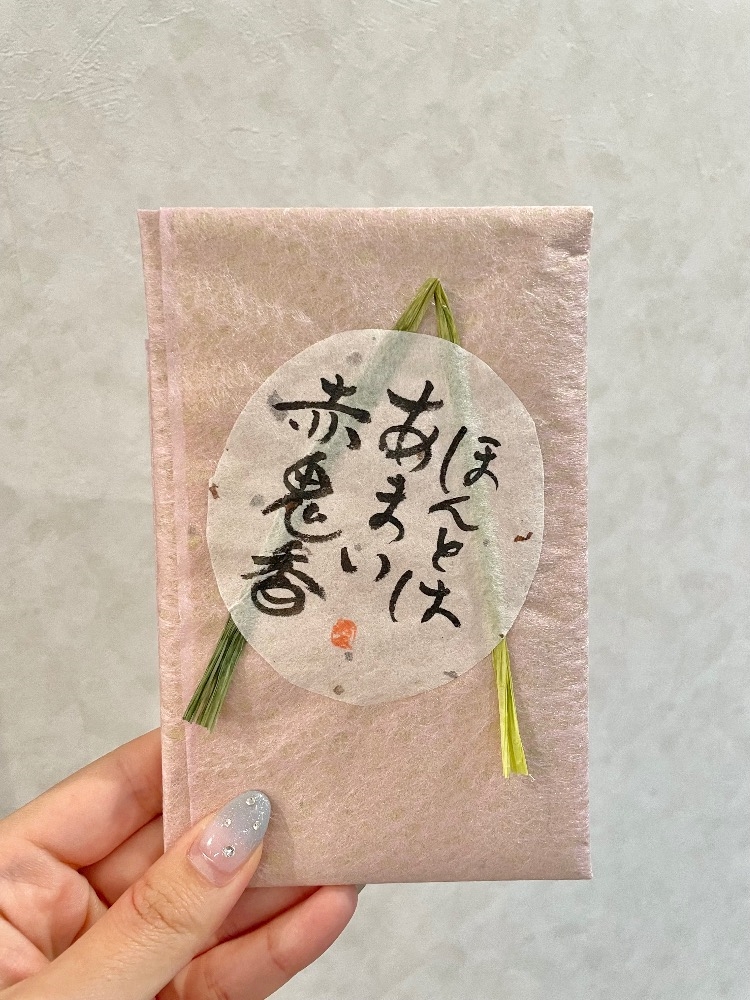 ほんとは
あまい
赤鬼香